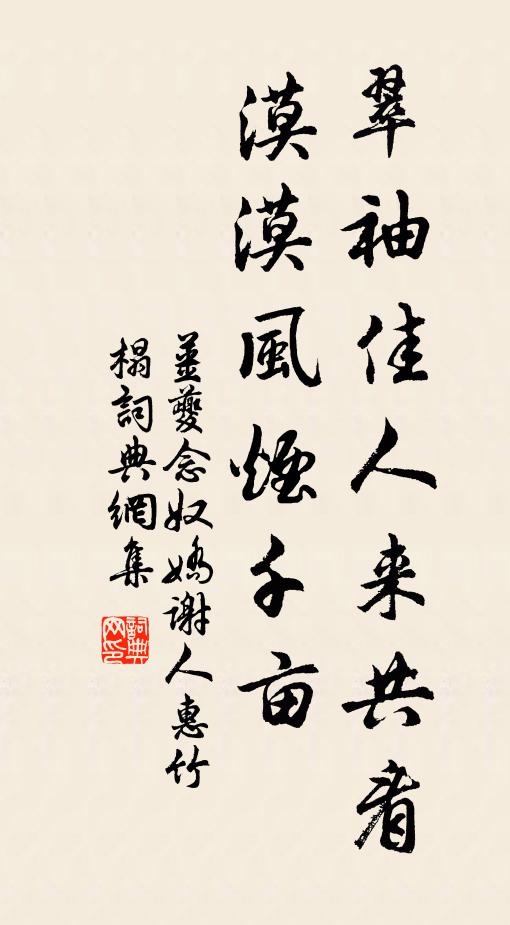 翠袖佳人来共看
漠漠風煙千亩
薑夔念奴嬌謝人惠竹
榻詞典網集
詞典網印